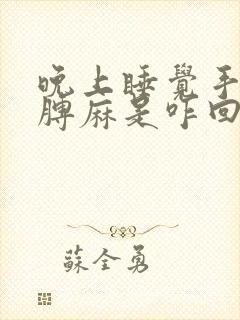 晚上睡覺手
臂麻是咋回
蘇全勇